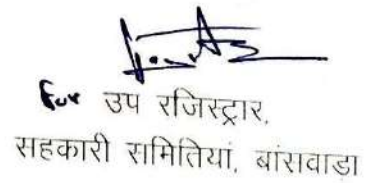 for उप रजिस्ट्रार,
सहकारी समितियां, बांसवाडा